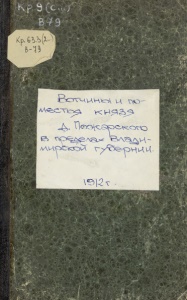 Кр 9 (с...)
В79
Кр.63.3/2
В-79
Вотчины и по-
местья князя
Д. Пожарского
в пределах Влади-
мирской губернии
1912 г.